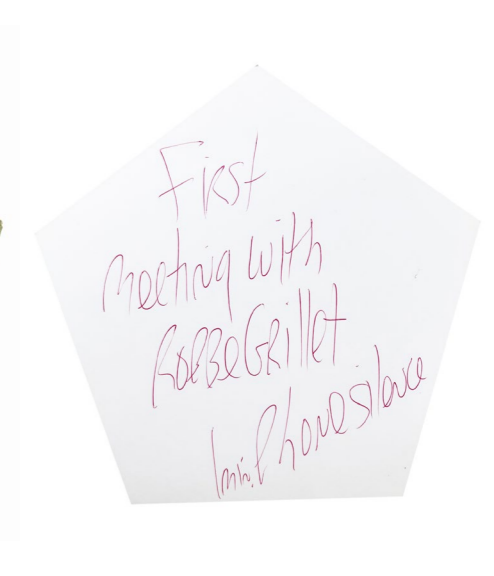 First
meeting with
RobbeGrillet
1 min. Phone silence